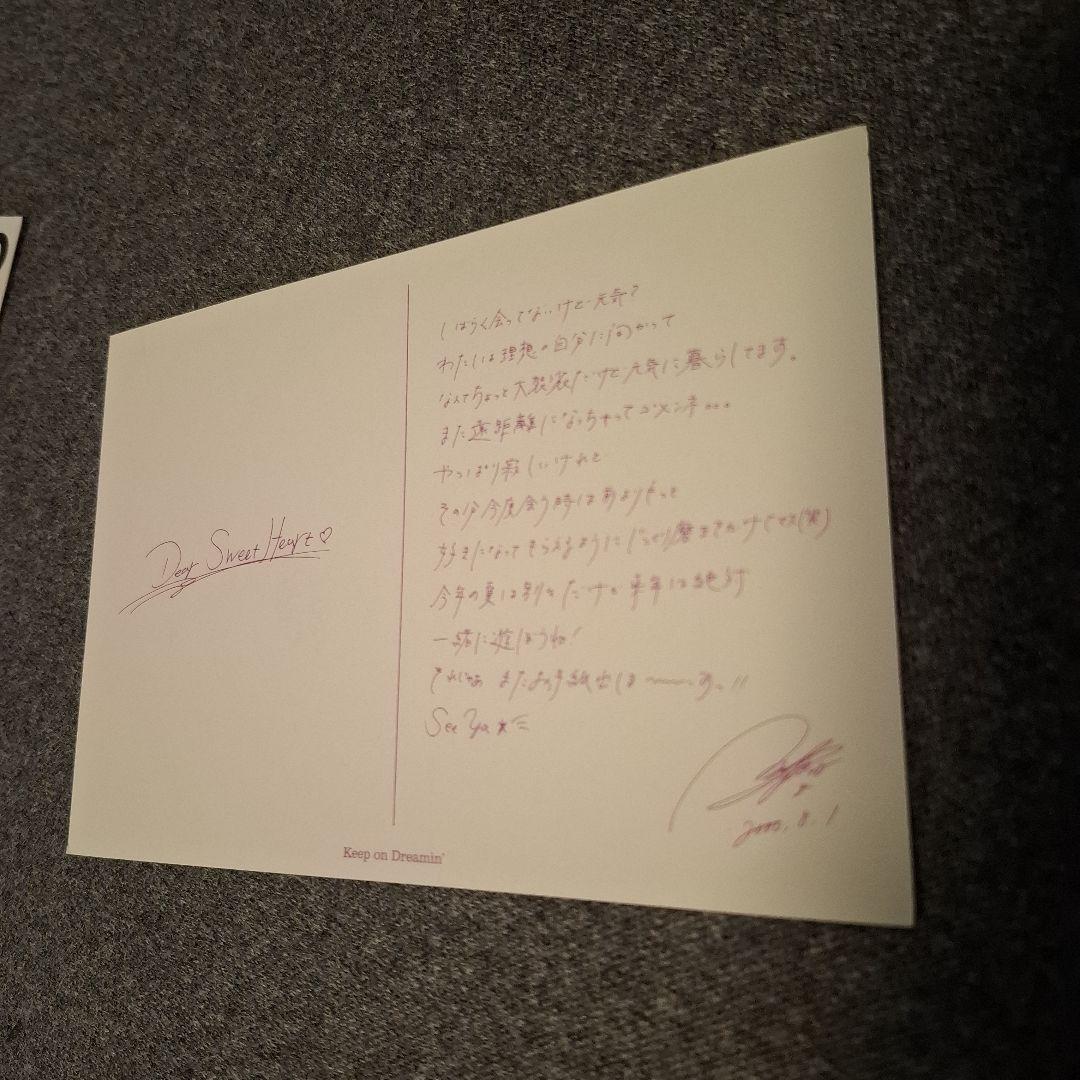 Dear Sweet Heart♡
しばらく会ってないけど元気?
わたしは理想の自分に向かって
なんてちょっと大袈裟だけど元気に暮らしてます。
また遠距離になっちゃってゴメンネ...
やっぱり寂しいけれど
その分今度会う時は前よりもっと
好きになってもらえるように
今年の夏は別々だけど来年は絶対
一緒に遊ぼうね!
それじゃあ またお手紙出しま〜〜〜す。!!
See Ya
2000. 8. 1
Keep on Dreamin'